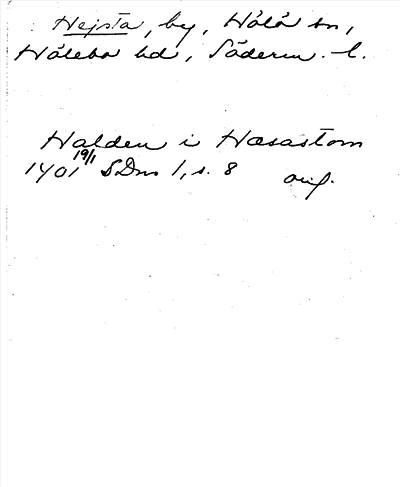 Hejsta, by, Hölö sn,
Hölebo hd, Söderm. l.
Halden i Hæsastom
1401 19/1 SDns 1, s. 8 orig.